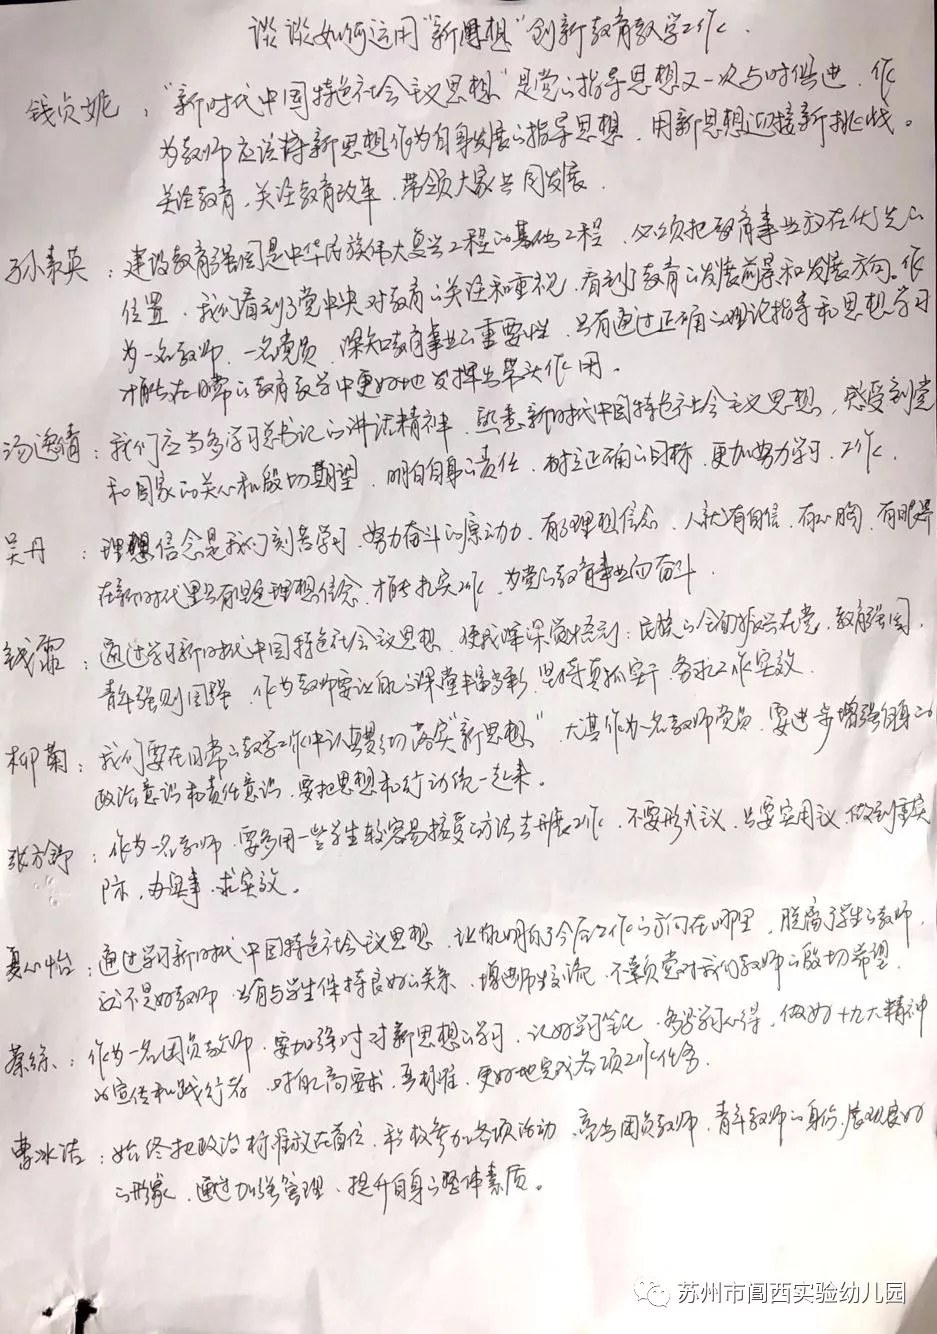 谈谈如何运用"新思想"创新教育教学工作.
钱贞妮："新时代中国特色社会主义思想"是党的指导思想又一次与时俱进.作
为教师应该将新思想作为自身发展的指导思想.用新思想迎接新挑战。
关注教育,关注教育改革.带领大家共同发展.
孙素英：建设教育强国是中华民族伟大复兴工程的基础工程.必须把教育事业放在优先的
位置.我们看到了党中央对教育的关注和重视.看到了教育的发展前景和发展方向。作
为一名教师.一名党员.深知教育事业的重要性.只有通过正确的理论指导和思想学习
才能在日常的教育教学中更好地发挥出带头作用。
汤逸倩：我们应当多学习总书记的讲话精神.熟悉新时代中国特色社会主义思想,感受到党
和国家的关心和殷切期望.明白自身的责任.树立正确的目标.更加努力学习.工作.
吴丹：理想信念是我们刻苦学习.努力奋斗的原动力.有了理想信念.人就有自信.有心胸.有眼界
在新时代里只有坚定理想信念.才能扎实工作.为党的教育事业而奋斗.
钱霜：通过学习新时代中国特色社会主义思想.使我深深觉悟到:民族的全面振兴在党.教育强国.
青年强则国强.作为教师要让自己的课堂丰富多彩.坚持真抓实干.务求工作实效.
柳菊：我们要在日常的教学工作中认真贯彻落实"新思想".尤其作为一名教师党员.要进一步增强自身的
政治意识和责任意识.要把思想和行动统一起来。
张方舒：作为一名教师.要多用一些学生较容易接受的方法去开展工作.不要形式主义.只要实用主义.做到重实
际.办实事.求实效。
夏心怡：通过学习新时代中国特色社会主义思想.让我明白了今后工作的方向在哪里.脱离了学生的教师.
这不是好教师.只有与学生保持良好的关系.增进师生交流.不辜负党对我们教师的殷切希望.
蔡综：作为一名团员教师.要加强时对新思想的学习.记好学习笔记.多写学习心得.做好十九大精神
的宣传和践行者.对自己高要求.高标准.更好地完成各项工作任务.
曹冰洁：始终把政治标准放在首位.积极参加各项活动.亮出团员教师.青年教师的身份.展现良好
的形象.通过加强管理.提升自身的整体素质。
苏州市阊西实验幼儿园